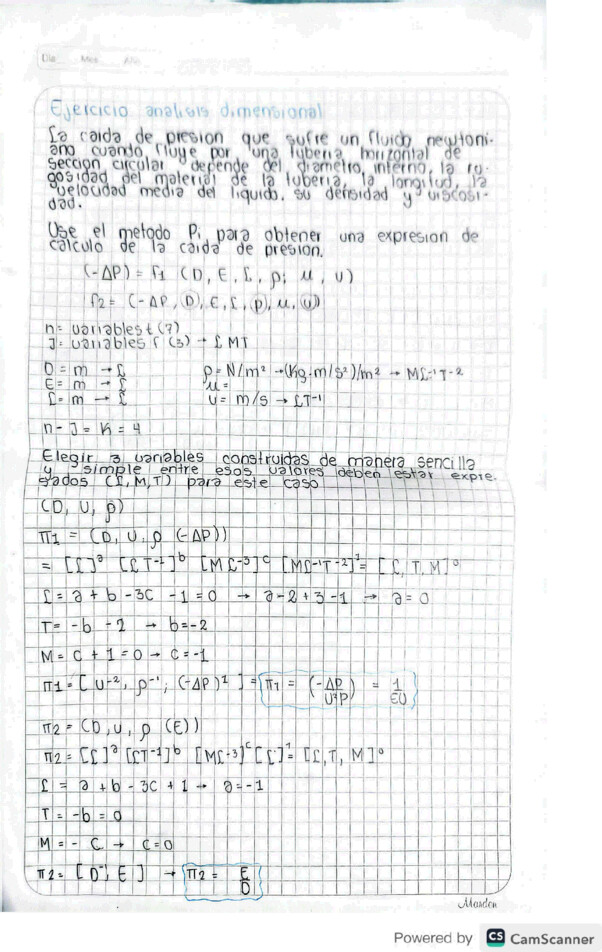 Dia Mes Año
Ejercicio analisis dimensional
La caida de presion que sufre un fluido newtoni-
ano cuando fluye por una tuberia horizontal de
seccion circular depende del diametro, interno, la ru-
gosidad del material de la tuberia, la longitud, la
velocidad media del liquido, su densidad y viscosi-
dad.
Use el metodo Pi para obtener una expresion de
calculo de la caida de presion.
(-ΔP) = f1 (D, E, L, ρ, μ, υ)
f2 = (-ΔP, D, E, L, ρ, μ, υ)
n = variables t (7)
J = variables f (3) → L MT
D = m → L
E = m → L
L = m → L
ρ = N/m² → (Kg.m/s²)/m² → ML⁻¹T⁻²
μ =
υ = m/s → LT⁻¹
n - J = K = 4
Elegir 3 variables construidas de manera sencilla
y simple entre esos valores deben estar expre.
sados (L, M, T) para este caso
(D, U, ρ)
π1 = (D, U, ρ (-ΔP))
= [L]ᵃ [LT⁻¹]ᵇ [ML⁻³]ᶜ [ML⁻¹T⁻²]¹ = [L, T, M]⁰
L = a + b - 3C - 1 = 0 → a - 2 + 3 - 1 → a = 0
T = -b - 2 → b = -2
M = C + 1 = 0 → C = -1
π1 = [U⁻², ρ⁻¹, (-ΔP)¹] = π1 = (-ΔP/U²P) = 1/EU
π2 = (D, U, ρ (E))
π2 = [L]ᵃ [LT⁻¹]ᵇ [ML-3]ᶜ [L]¹ = [L, T, M]⁰
L = a + b - 3C + 1 → a = -1
T = -b = 0
M = - C → C = 0
π2 = [D⁻¹, E] → π2 = E/D
Masden
Powered by CS CamScanner